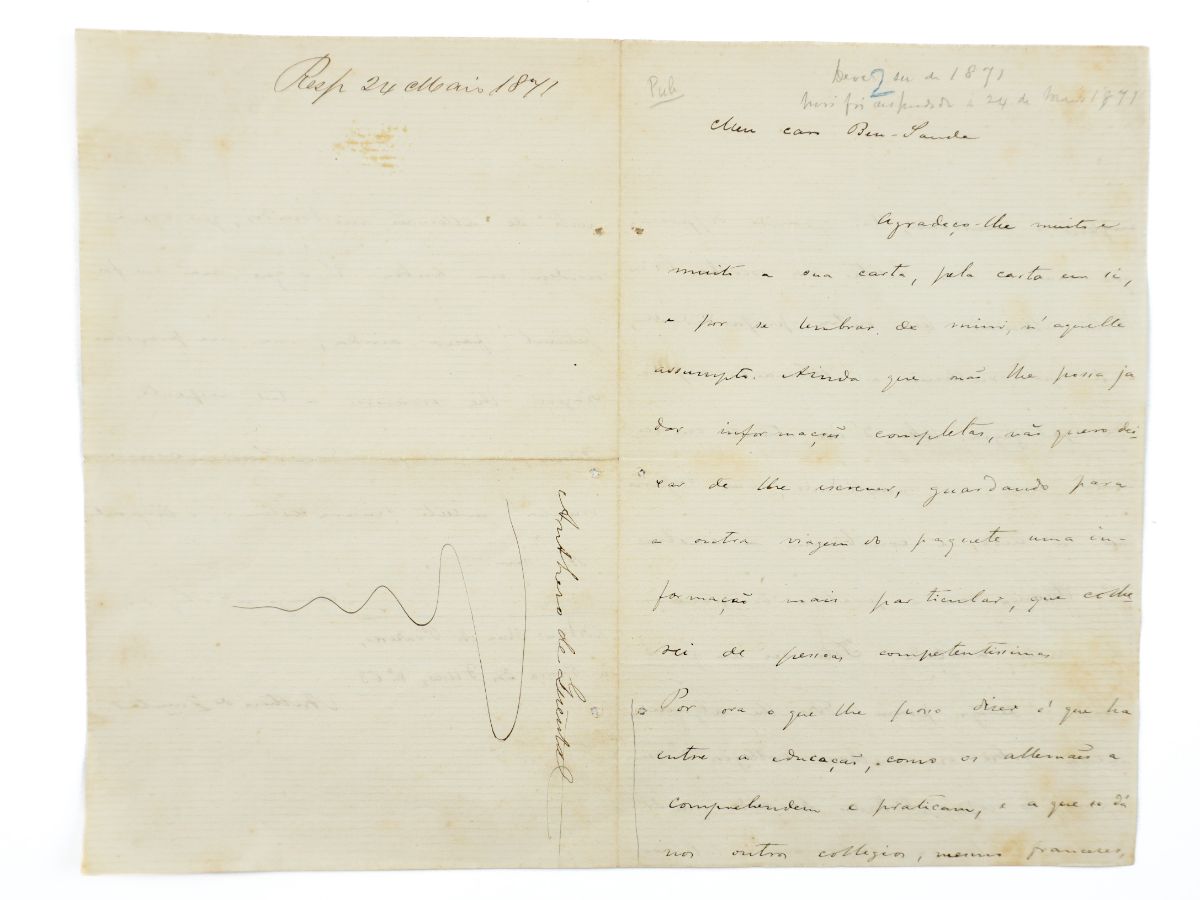 Resp 24 Maio 1871
Anthero de Quental
Pub
Deve ser de 1871
2
foi respondida a 24 de Maio 1871
Meu caro Ben-Saude
Agradeço-lhe muito e
muito a sua carta, pela carta em si,
e por se lembrar de mim, n'aquelle
assumpto. Ainda que não lhe possa ja
dar informação completas, não quero dei-
xar de lhe escrever, guardando para
a outra viagem do paquete uma in-
formação mais particular, que colhe-
rei de pessoas competentissimas
Por ora o que lhe posso dizer é que ha
entre a educação, como os allemães a
comprehendem e praticam, e a que se dá
nos outros collegios, mesmo franceses,